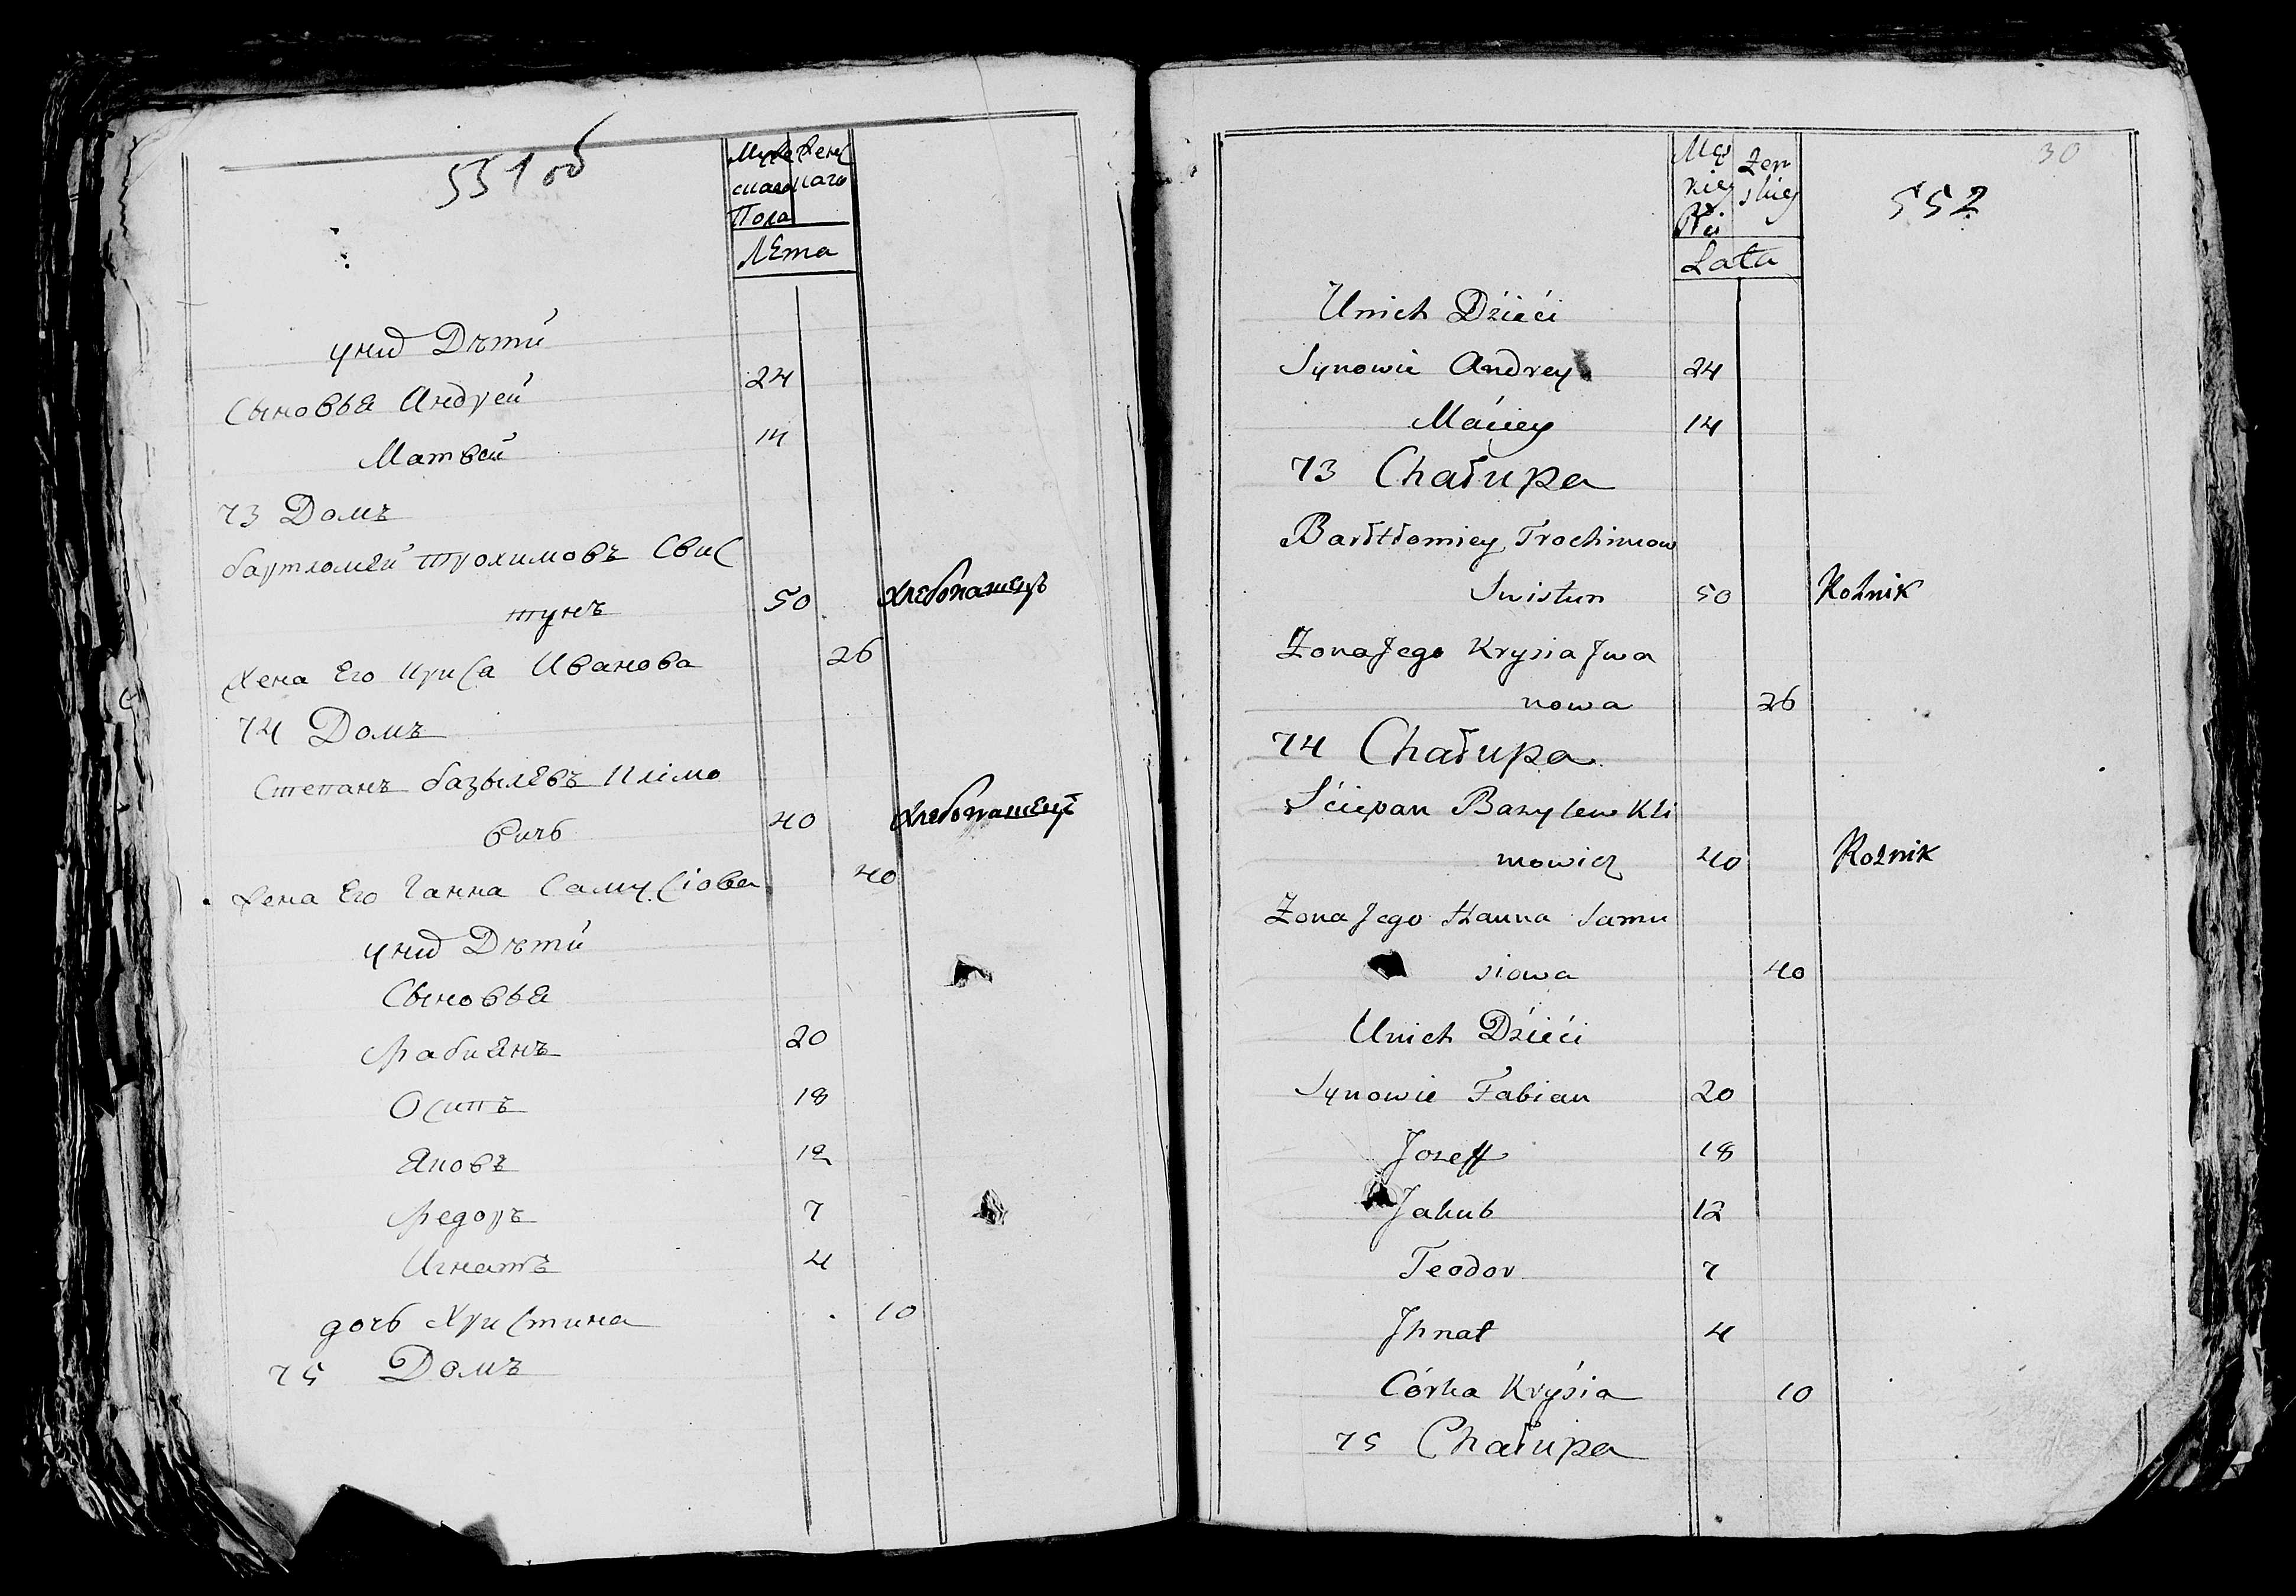 551 об
Муже Женс
скаго каго
Пола
Лѣта
у нихъ Дѣти
Сыновья Андрей 24
Матвей 14
73 Домъ
бартломей трохимовъ Свис
тунъ 50 хлебопашецъ
Жена Его Криса Иванова 26
74 Домъ
Степанъ базылевъ Климо
вичъ 40 хлебопашецъ
Жена Его Ганна Самусіова 40
у нихъ Дѣти
Сыновья
Фабиянъ 20
Осипъ 18
Яковъ 12
Федоръ 7
Игнатъ 4
дочь Христина 10
75 Домъ
30
552
Żen
skiey
Lata
Unich Dzieci
Synowie Andrey 24
Maciey 14
73 Chałupa
Barłtłomiey Trochimow
Swistun 50 Rolnik
Żona Jego Krysia Jwa
nowa 26
74 Chałupa
Sciepan Bazylew Kli
mowicz 40 Rolnik
Żona Jego Hanna Samu
siowa 40
Unich Dzieci
Synowie Fabian 20
Jozeff 18
Jakub 12
Teodor 7
Jhnat 4
Córka Krysia 10
75 Chałupa